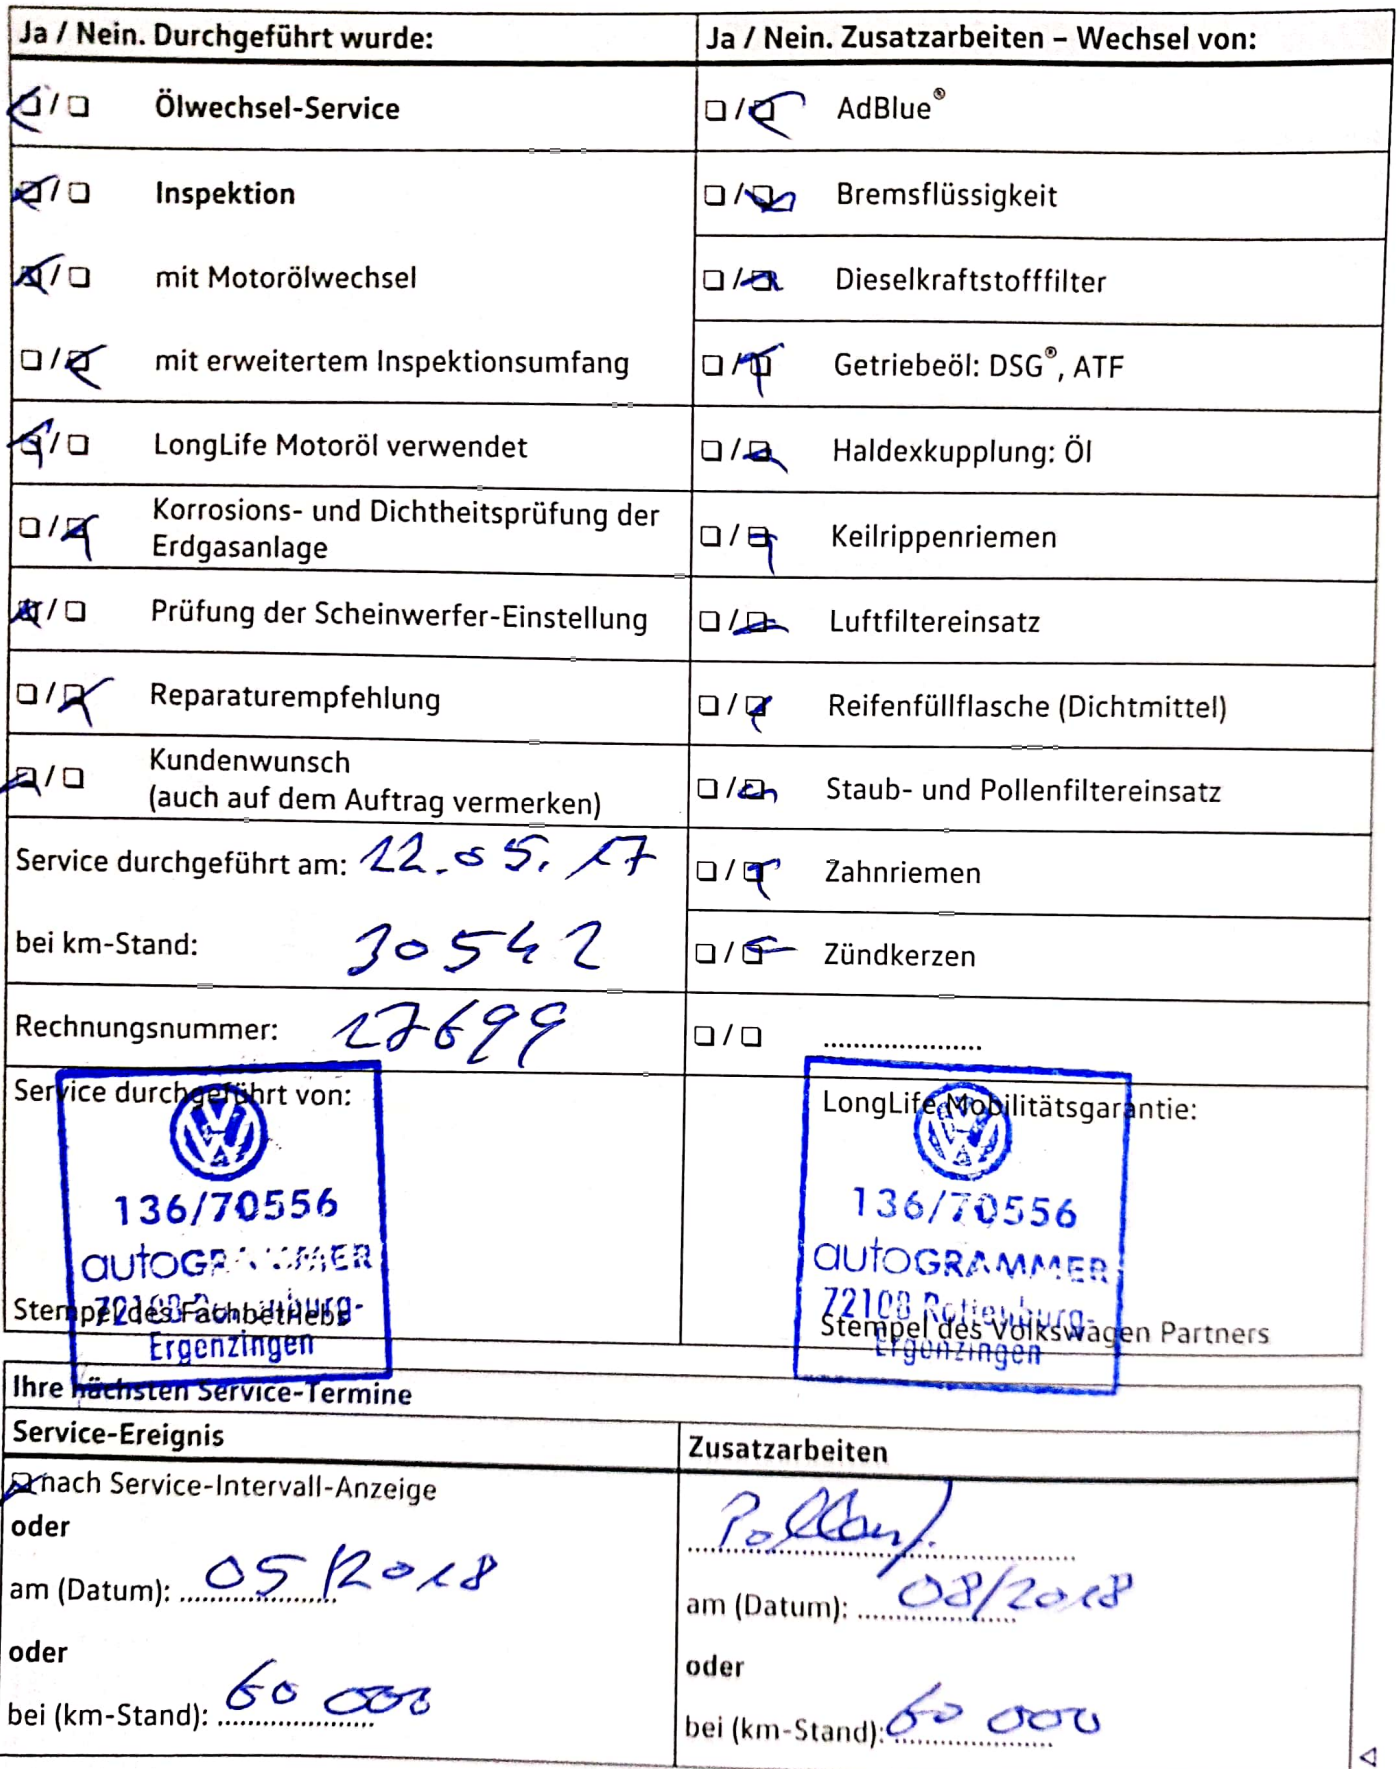 Ja / Nein. Durchgeführt wurde:
Ölwechsel-Service
Inspektion
mit Motorölwechsel
mit erweitertem Inspektionsumfang
LongLife Motoröl verwendet
Korrosions- und Dichtheitsprüfung der
Erdgasanlage
Prüfung der Scheinwerfer-Einstellung
Reparaturempfehlung
Kundenwunsch
(auch auf dem Auftrag vermerken)
Service durchgeführt am: 12.05.17
bei km-Stand: 30542
Rechnungsnummer: 17699
Service durchgeführt von:
136/70556
autoGRAMMER
72108 Rottenburg-
Stempel des Fachbetriebs
Ergenzingen
Ja / Nein. Zusatzarbeiten – Wechsel von:
AdBlue®
Bremsflüssigkeit
Dieselkraftstofffilter
Getriebeöl: DSG®, ATF
Haldexkupplung: Öl
Keilrippenriemen
Luftfiltereinsatz
Reifenfüllflasche (Dichtmittel)
Staub- und Pollenfiltereinsatz
Zahnriemen
Zündkerzen
LongLife Mobilitätsgarantie:
136/70556
autoGRAMMER
72108 Rottenburg-
Stempel des Volkswagen Partners
Ergenzingen
Ihre nächsten Service-Termine
Service-Ereignis
nach Service-Intervall-Anzeige
oder
am (Datum): 05/2018
oder
bei (km-Stand): 60 000
Zusatzarbeiten
am (Datum): 08/2018
oder
bei (km-Stand): 60 000